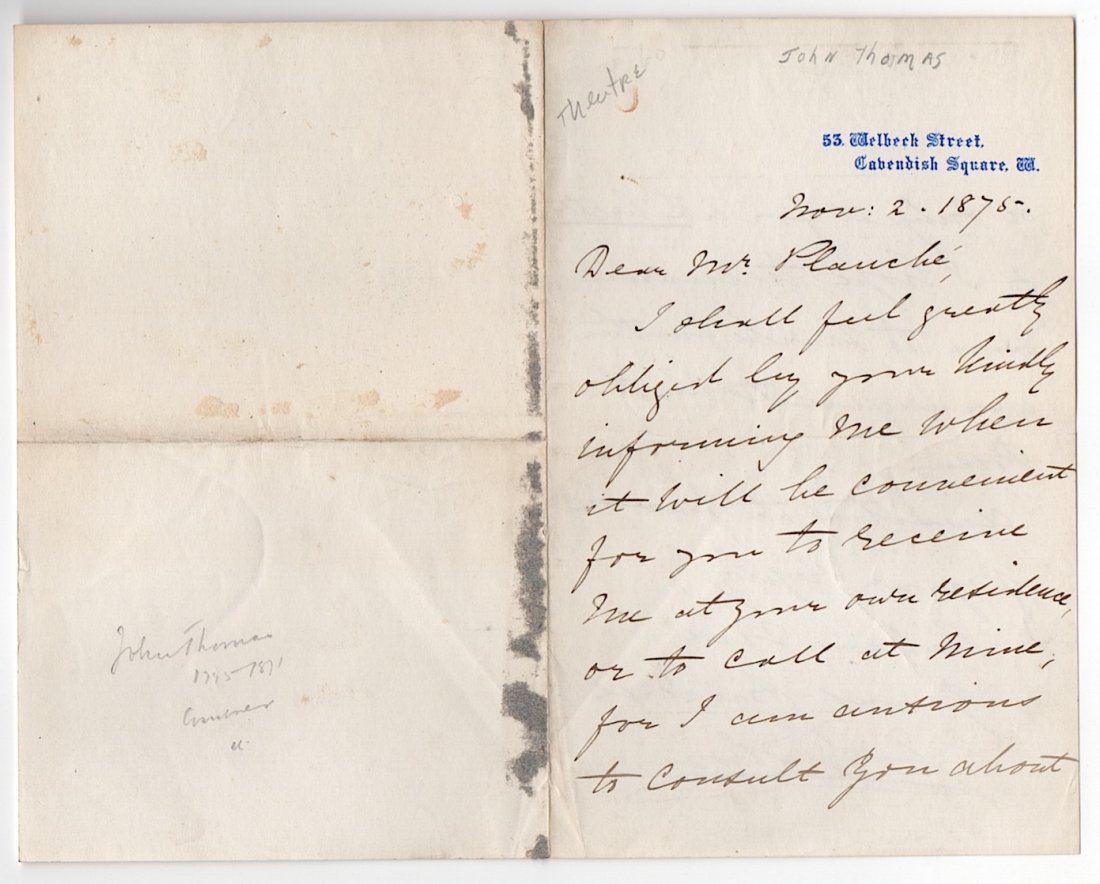 John Thomas
Theatre
53. Welbeck Street,
Cavendish Square, W.
Nov: 2. 1875.
Dear Mr. Planché,
I shall feel greatly
obliged by your kindly
informing me when
it will be convenient
for you to receive
me at your own residence,
or to call at mine,
for I am anxious
to consult you about
John Thomas